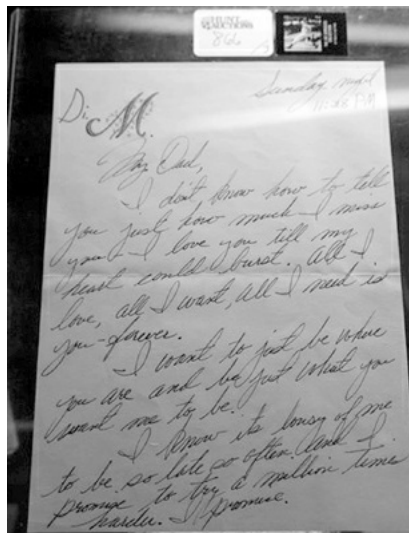 HUNT
AUCTIONS
86
Sunday night
11:28 PM
Di M.
My Dad,
I don't know how to tell
you just how much I miss
you - I love you till my
heart could burst. All I
love, all I want, all I need is
you - forever.
I want to just be where
you are and be just what you
want me to be.
I know it's lousy of me
to be so late so often and I
promise to try a million times
harder. I promise.